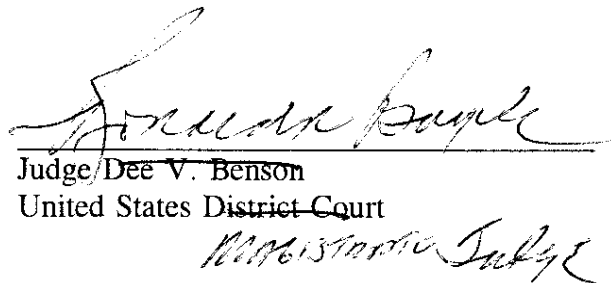 Judge Dee V. Benson
United States District Court
Magistrate Judge